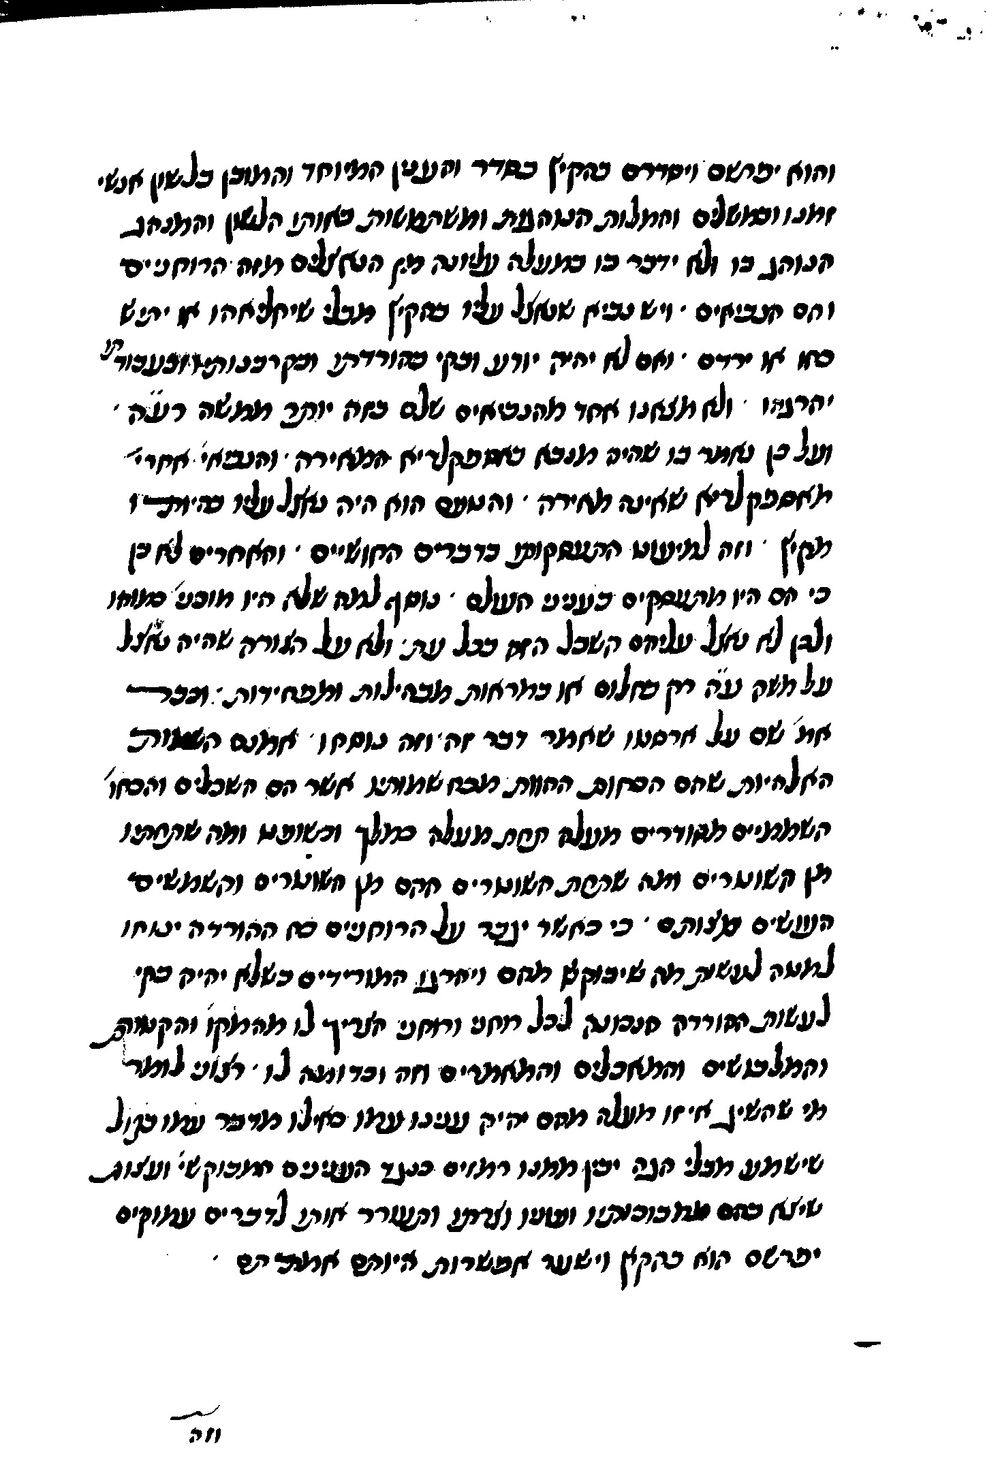 והוא יפרשם ויסדרם בהקיץ כסדר והענין המיוחד והמובן בלשון אנשי
זמנו ובמשלים והמלות הנוהגות ומשתמשות באותו הלשון והמנהג
הנוהג בו ולא ידבר בו במעלה עליונה מן הנאצלים מזה הרוחניים
והם הנביאים · ויש נביא שנאצל עליו בהקיץ מבלי שיחלאהו או יתיש
כחו או ירדם · ואם לא יהיה יודע ובקי בהורדתו ובקרבנותיו ובעבודתו
יהרגהו · ולא מצאנו אחד מהנביאים שלם בזה יותר ממשה רע״ה ·
ועל כן נאמר בו שהיה מנבא באספקלריא המאירה · והנביאי׳ אחרי׳
מאספקלריא שאינה מאירה · והטעם הוא היה נאצל עליו בהיותו
מקיץ · וזה למיעוט התעסקותו בדברים החושיים · והאחרים לא כן
כי הם היו מתעסקים בעניני העולם · נוסף למה שלא היו מוכני׳ כמוהו
ולכן לא נאצל עליהם השכל הזה בכל עת · ולא על הצורה שהיה נאצל
על משה ע״ה רק בחלום או במראות מבהילות ומפחידות · וכבר
אמ׳ שם על ארסטו שאמר דבר זה · וזה נוסחו · אמנם השמות
האלהיות שהם הכחות ההוות מכח שמותיו אשר הם השכלים והכחו׳
השממיים מסודרים מעלה תחת מעלה כמלך וכשוטים ומה שתחתיו
מן השוטרים ומה שתחת השוטרים ההם מן השוערים והשמשים
העושים מצותם · כי כאשר יגבר על הרוחניים כח ההורדה ינוחו
למטה לעשות מה שיבוקש מהם ויהרגו המורידים כשלא יהיה בקי
לעשות ההורדה הנכונה לכל רוחני ורוחני הצריך לו מהמקו׳ והקטורת
והמלבושים והמאכלים והמאמרים וזה וכדומה לו · רצוני לומר
מי שהשיג איזו מעלה מהם יהיה ענינו עמו כאילו מדבר עמו בקול
שישמע מבלי הנה יבין ממנו רמזים כנגד הענינים המבוקשי׳ ועצות
שיצא בהם ממבוכותיו וטעו וצרתו והעורר אותו לדברים עמוקים
יפרשם הוא בהקיץ וישער אפשרות היותם אמתיים ·
וזה